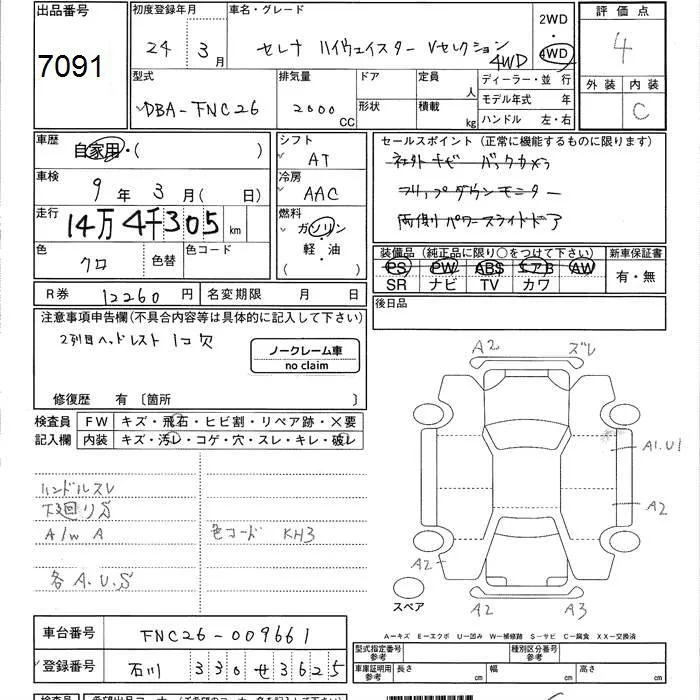 出品番号
7091
初度登録年月
24年 3月
車名・グレード
セレナ ハイウェイスター Vセレクション
4WD
2WD
・
4WD
評価点
4
外装 内装
C
型式
DBA-FNC26
排気量
2000 CC
ドア
形状
定員 人
積載 kg
ディーラー・並 行
モデル年式 年
ハンドル 左・右
車歴
自家用・( )
車検
9年 3月 (日)
走行
14万4千305 km
色
クロ
色替
色コード
シフト
AT
冷房
AAC
燃料
ガソリン
軽・油
( )
セールスポイント (正常に機能するものに限ります)
社外ナビ バックカメラ
フリップダウンモニター
両側パワースライドドア
装備品 (純正品に限り○をつけて下さい)
PS PW ABS エアB AW
SR ナビ TV カワ
新車保証書
有・無
R券 12260円
名変期限 月 日
後日品
注意事項申告欄(不具合内容等は具体的に記入して下さい)
2列目ヘッドレスト 1コ欠
ノークレーム車
no claim
修復歴 有〔箇所 〕
検査員
記入欄
FW キズ・飛石・ヒビ割・リペア跡・X要
内装 キズ・汚レ・コゲ・穴・スレ・キレ・破レ
ハンドルスレ
下廻りS
A/W A
色コード KH3
各A.U.S
A2 ズレ
A1.U1
A2
A2
A2 A3
スペア
A-キズ E-エクボ U-凹み W-補修跡 S-サビ C-腐食 XX-交換済
車台番号 FNC26-009661
登録番号 石川 330 せ 3625
型式指定番号
参考
種別区分番号
参考
車庫証明用
参考
長さ cm 幅 cm 高さ cm